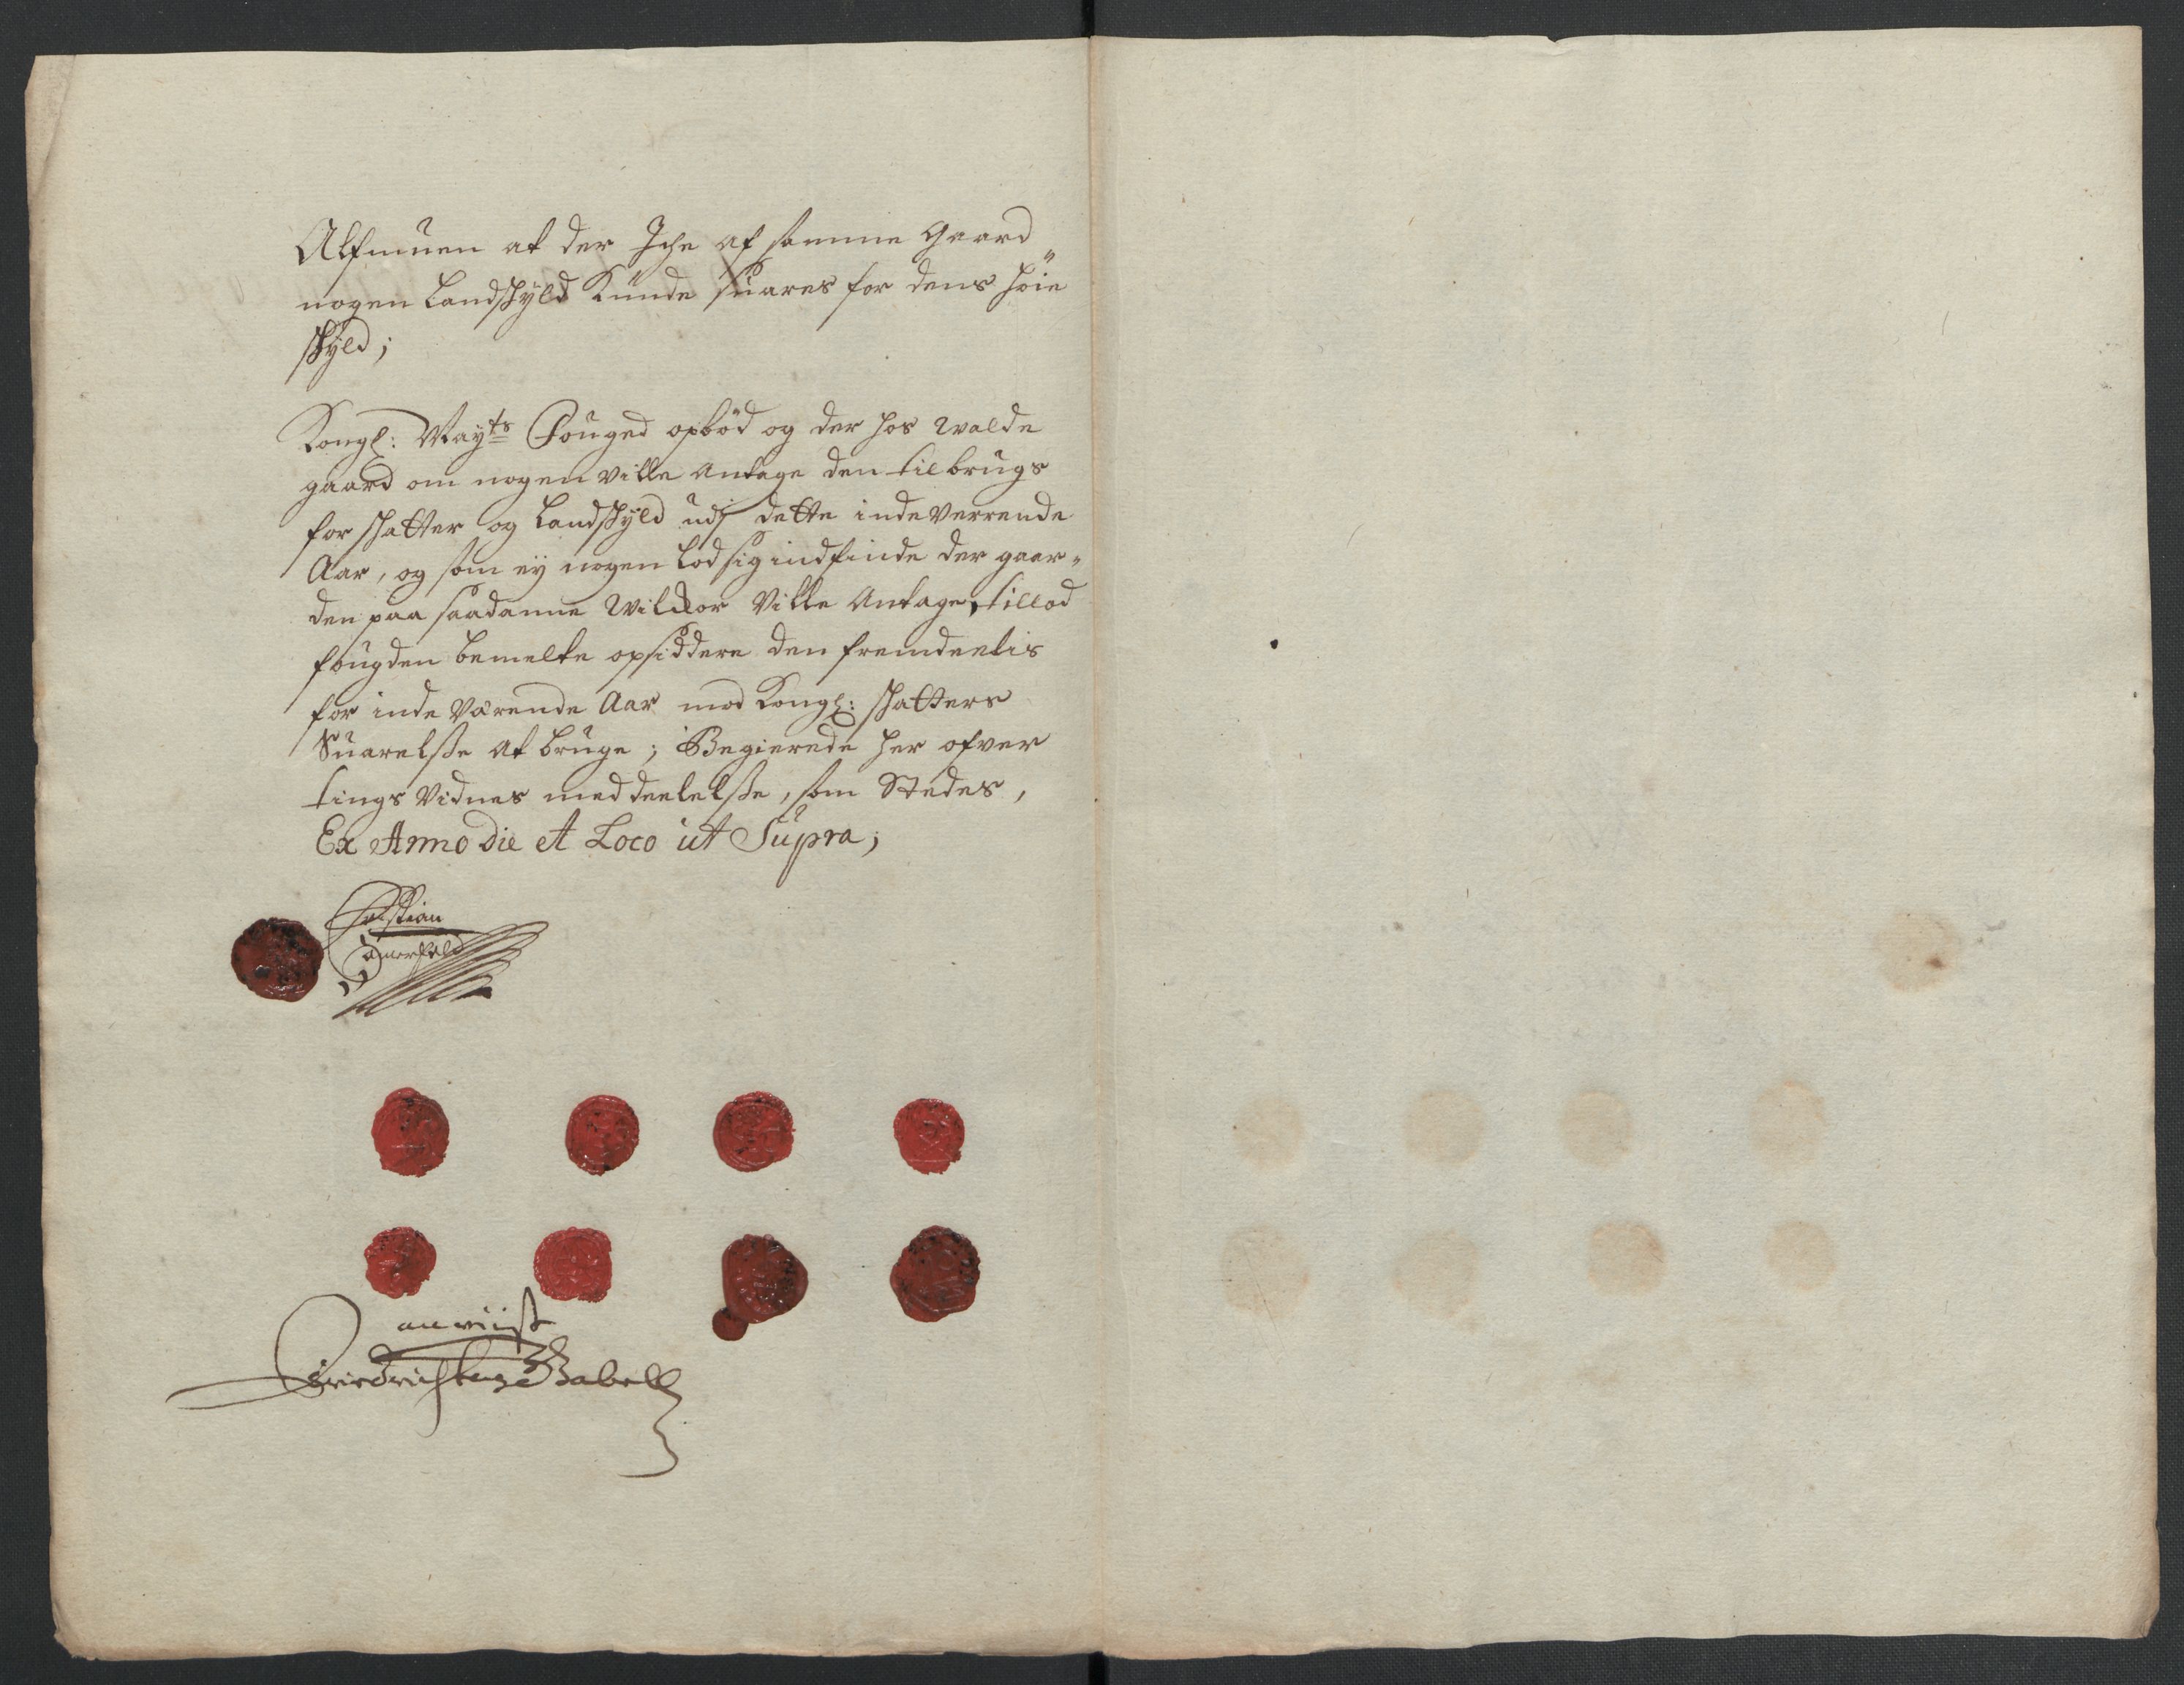 Alfmuen at der Iche af samme Gaard
nogen Landskÿld Kunde suares for dens höie
skÿld;
Kongl: Maÿts Fouged opböd og der hos walde
gaard om nogen ville Antage den til brugs
for skatter og Landskÿld udj dette indeverrende
Aar, og som eÿ nogen lod sig indfinde der gaar-
den paa saadanne wilckor ville Antage, tillod
fougden bemelte opsiddere den fremdeelis
for inde værende Aar mod Kongl: skatters
Suarelsse at bruge; Begierede her ofver
tings vidnes meddeelelsse, som Stedes,
Ex Anno die et Loco ut Supra;
Christian